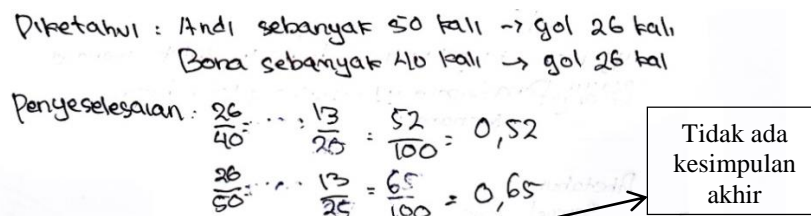 Diketahui : Andi sebanyak 50 kali → gol 26 kali
Bona sebanyak 40 kali → gol 26 kal
Penyeselesaian : 26/40 = ... : 13/20 = 52/100 = 0,52
26/50 = ... 13/25 = 65/100 = 0,65
Tidak ada
kesimpulan
akhir